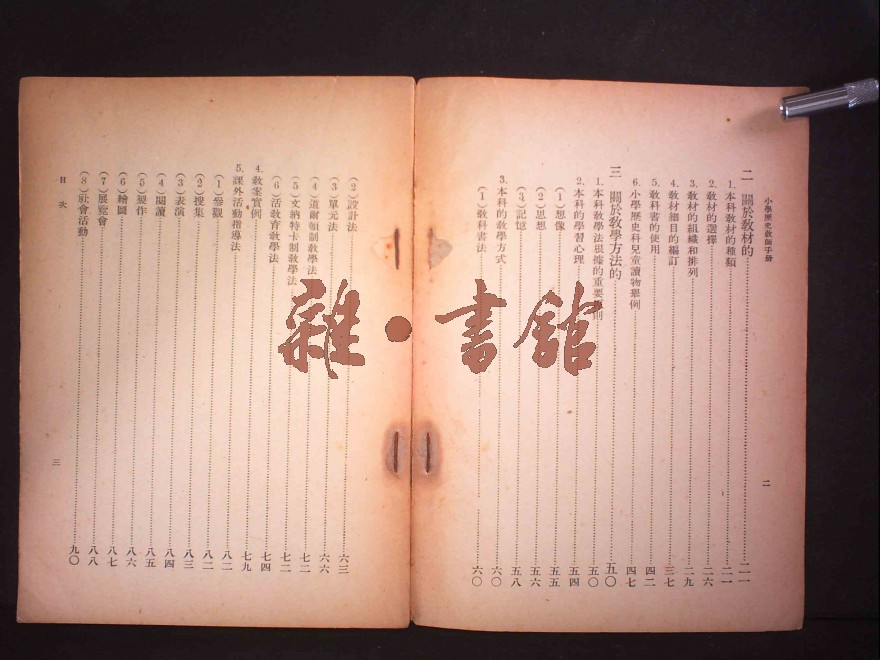 小學歷史教師手册
二
二 關於教材的……二一
1.本科教材的種類……二一
2.教材的選擇……二六
3.教材的組織和排列……二九
4.教材細目的編訂……三七
5.教科書的使用……四二
6.小學歷史科兒童讀物舉例……四七
三 關於教學方法的……五〇
1.本科教學法根據的重要原則……五〇
2.本科的學習心理……五四
(1)想像……五五
(2)思想……五六
(3)記憶……五八
3.本科的教學方式……六〇
(1)教科書法……六〇
(2)設計法……六三
(3)單元法……六六
(4)道爾頓制教學法……七二
(5)文納特卡制教學法……七二
(6)活教育教學法……七二
4.教案實例……七四
5.課外活動指導法……七九
(1)參觀……八二
(2)搜集……八二
(3)表演……八三
(4)閱讀……八四
(5)製作……八五
(6)繪圖……八六
(7)展覽會……八七
(8)社會活動……九〇
目次
三
雜·書館